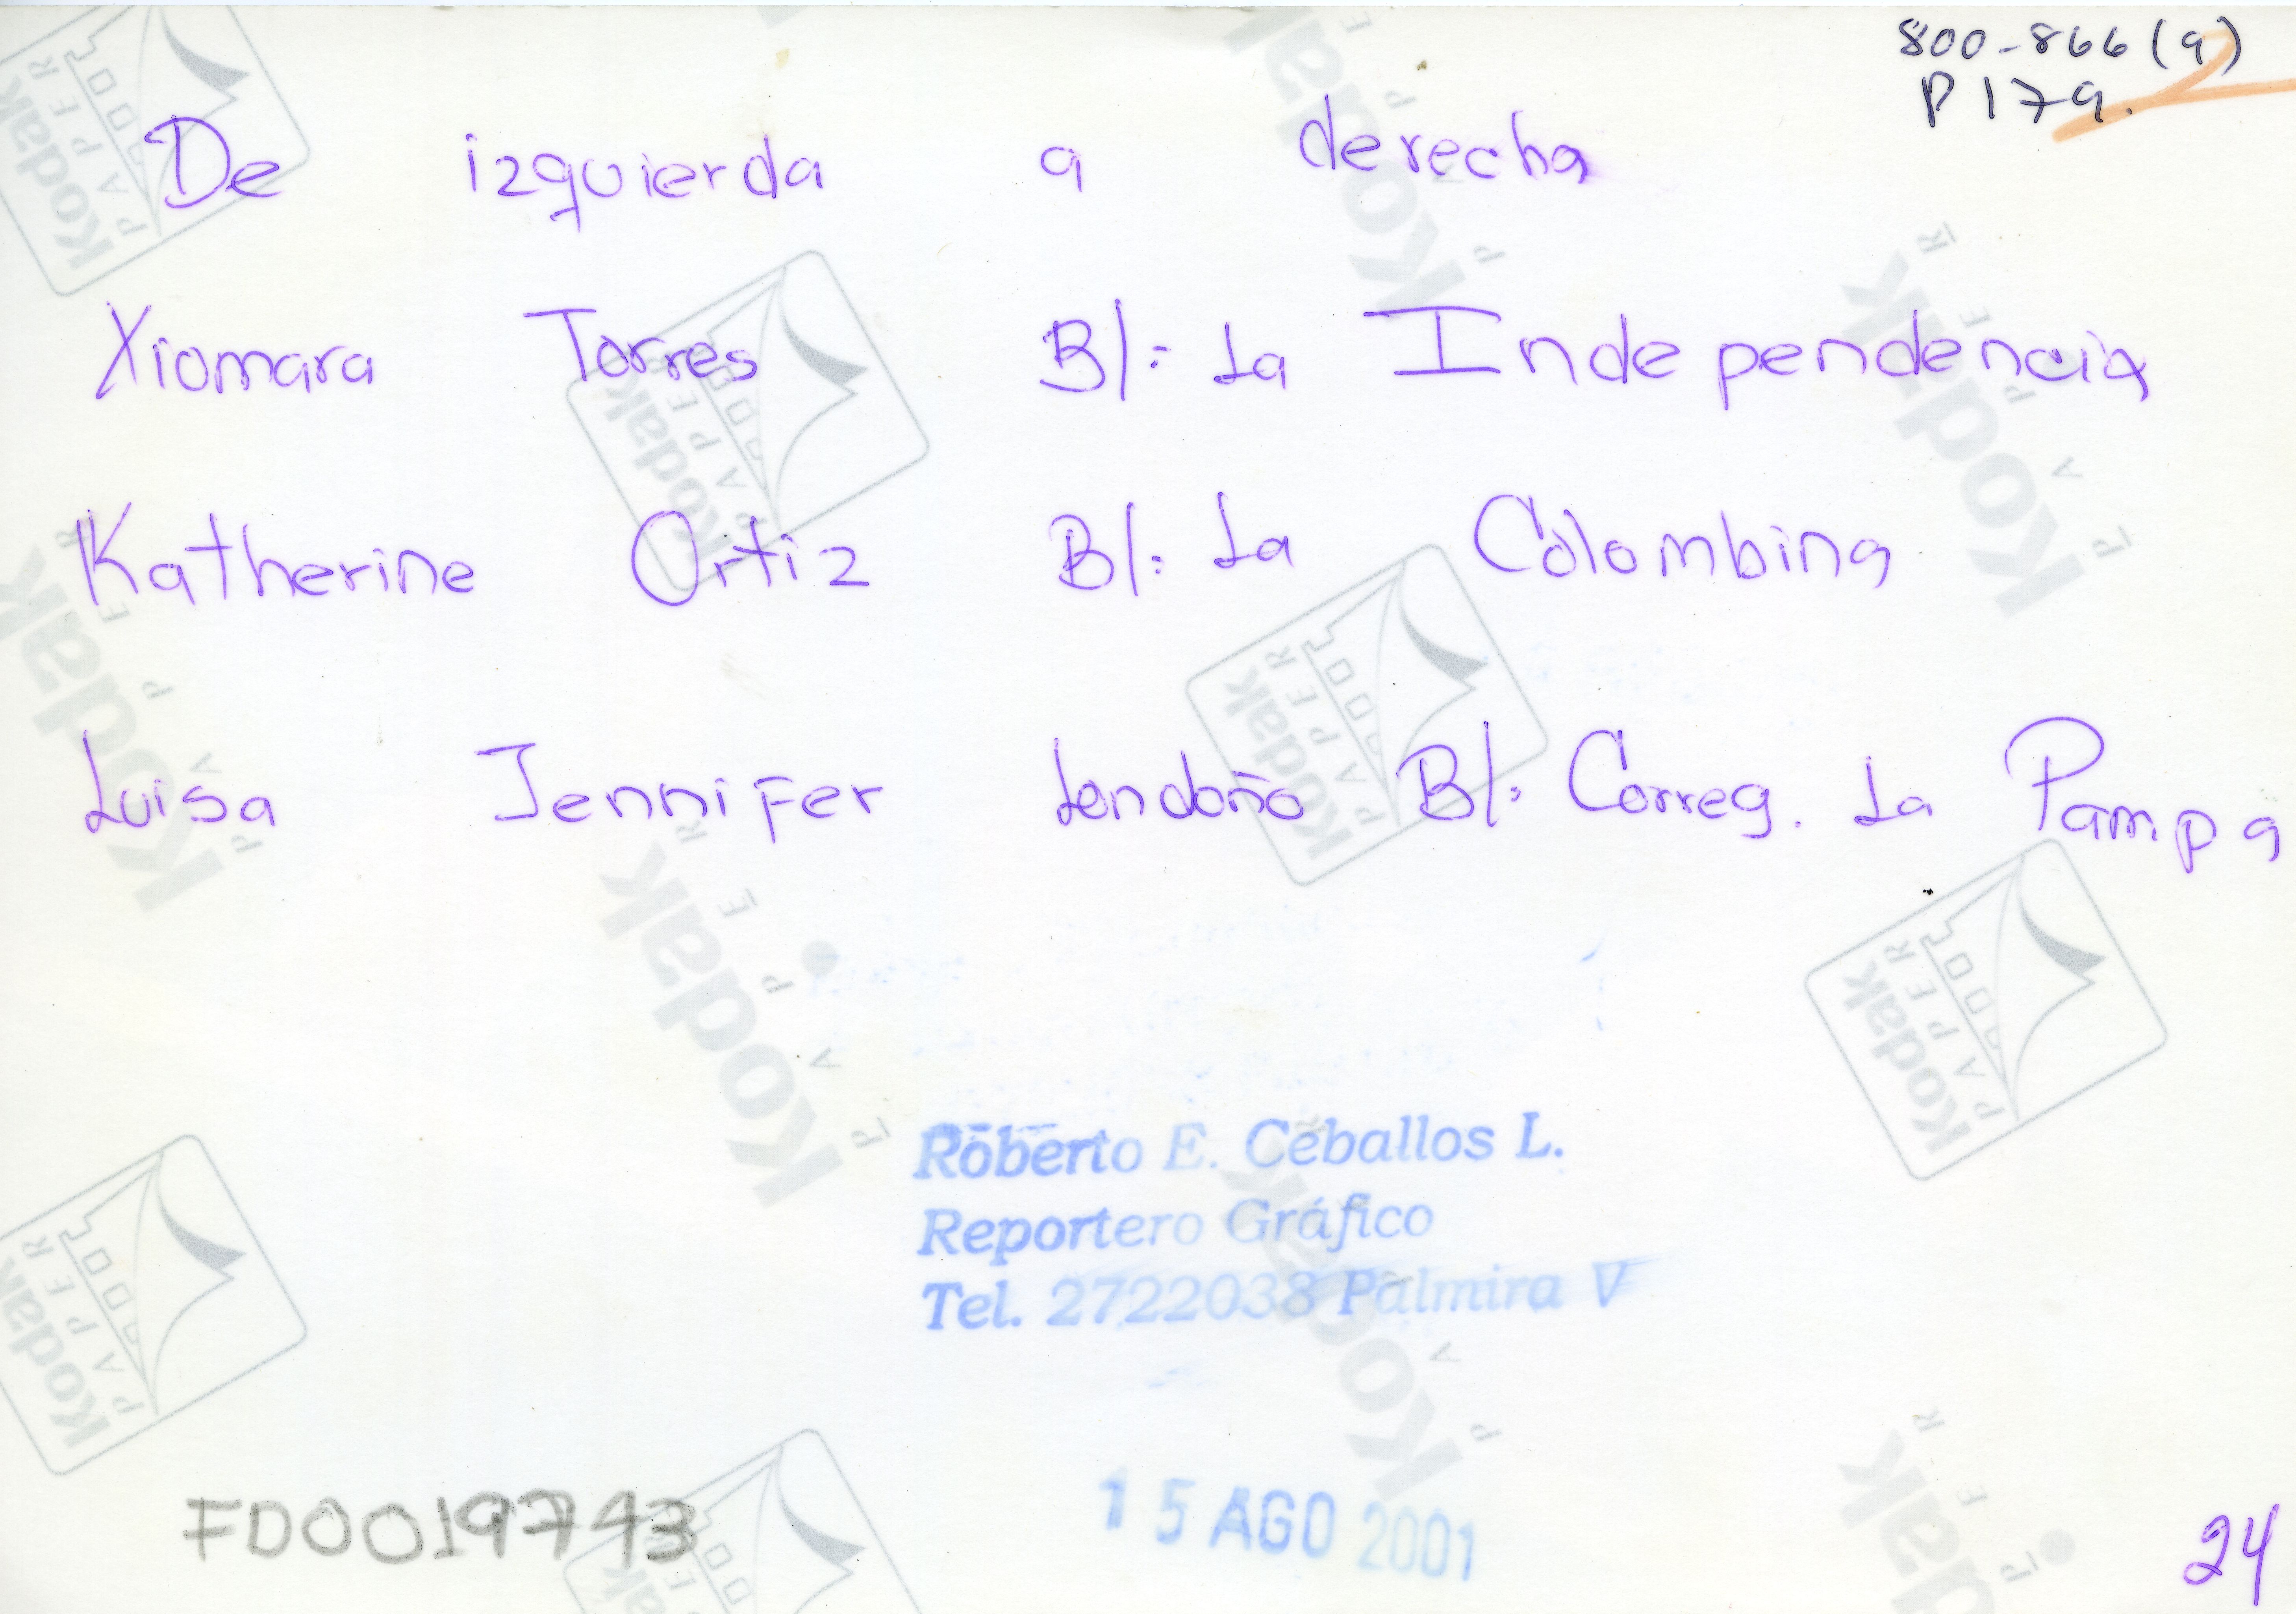 800-866 (9)
P 179.
De izquierda a derecha
Xiomara Torres B/: La Independencia
Katherine Ortiz B/: La Colombina
Luisa Jennifer Londoño B/: Correg. La Pampa
Roberto E. Ceballos L.
Reportero Gráfico
Tel. 2722038 Palmira V
FD0019743
15 AGO 2001
24
Kodak
PAPER